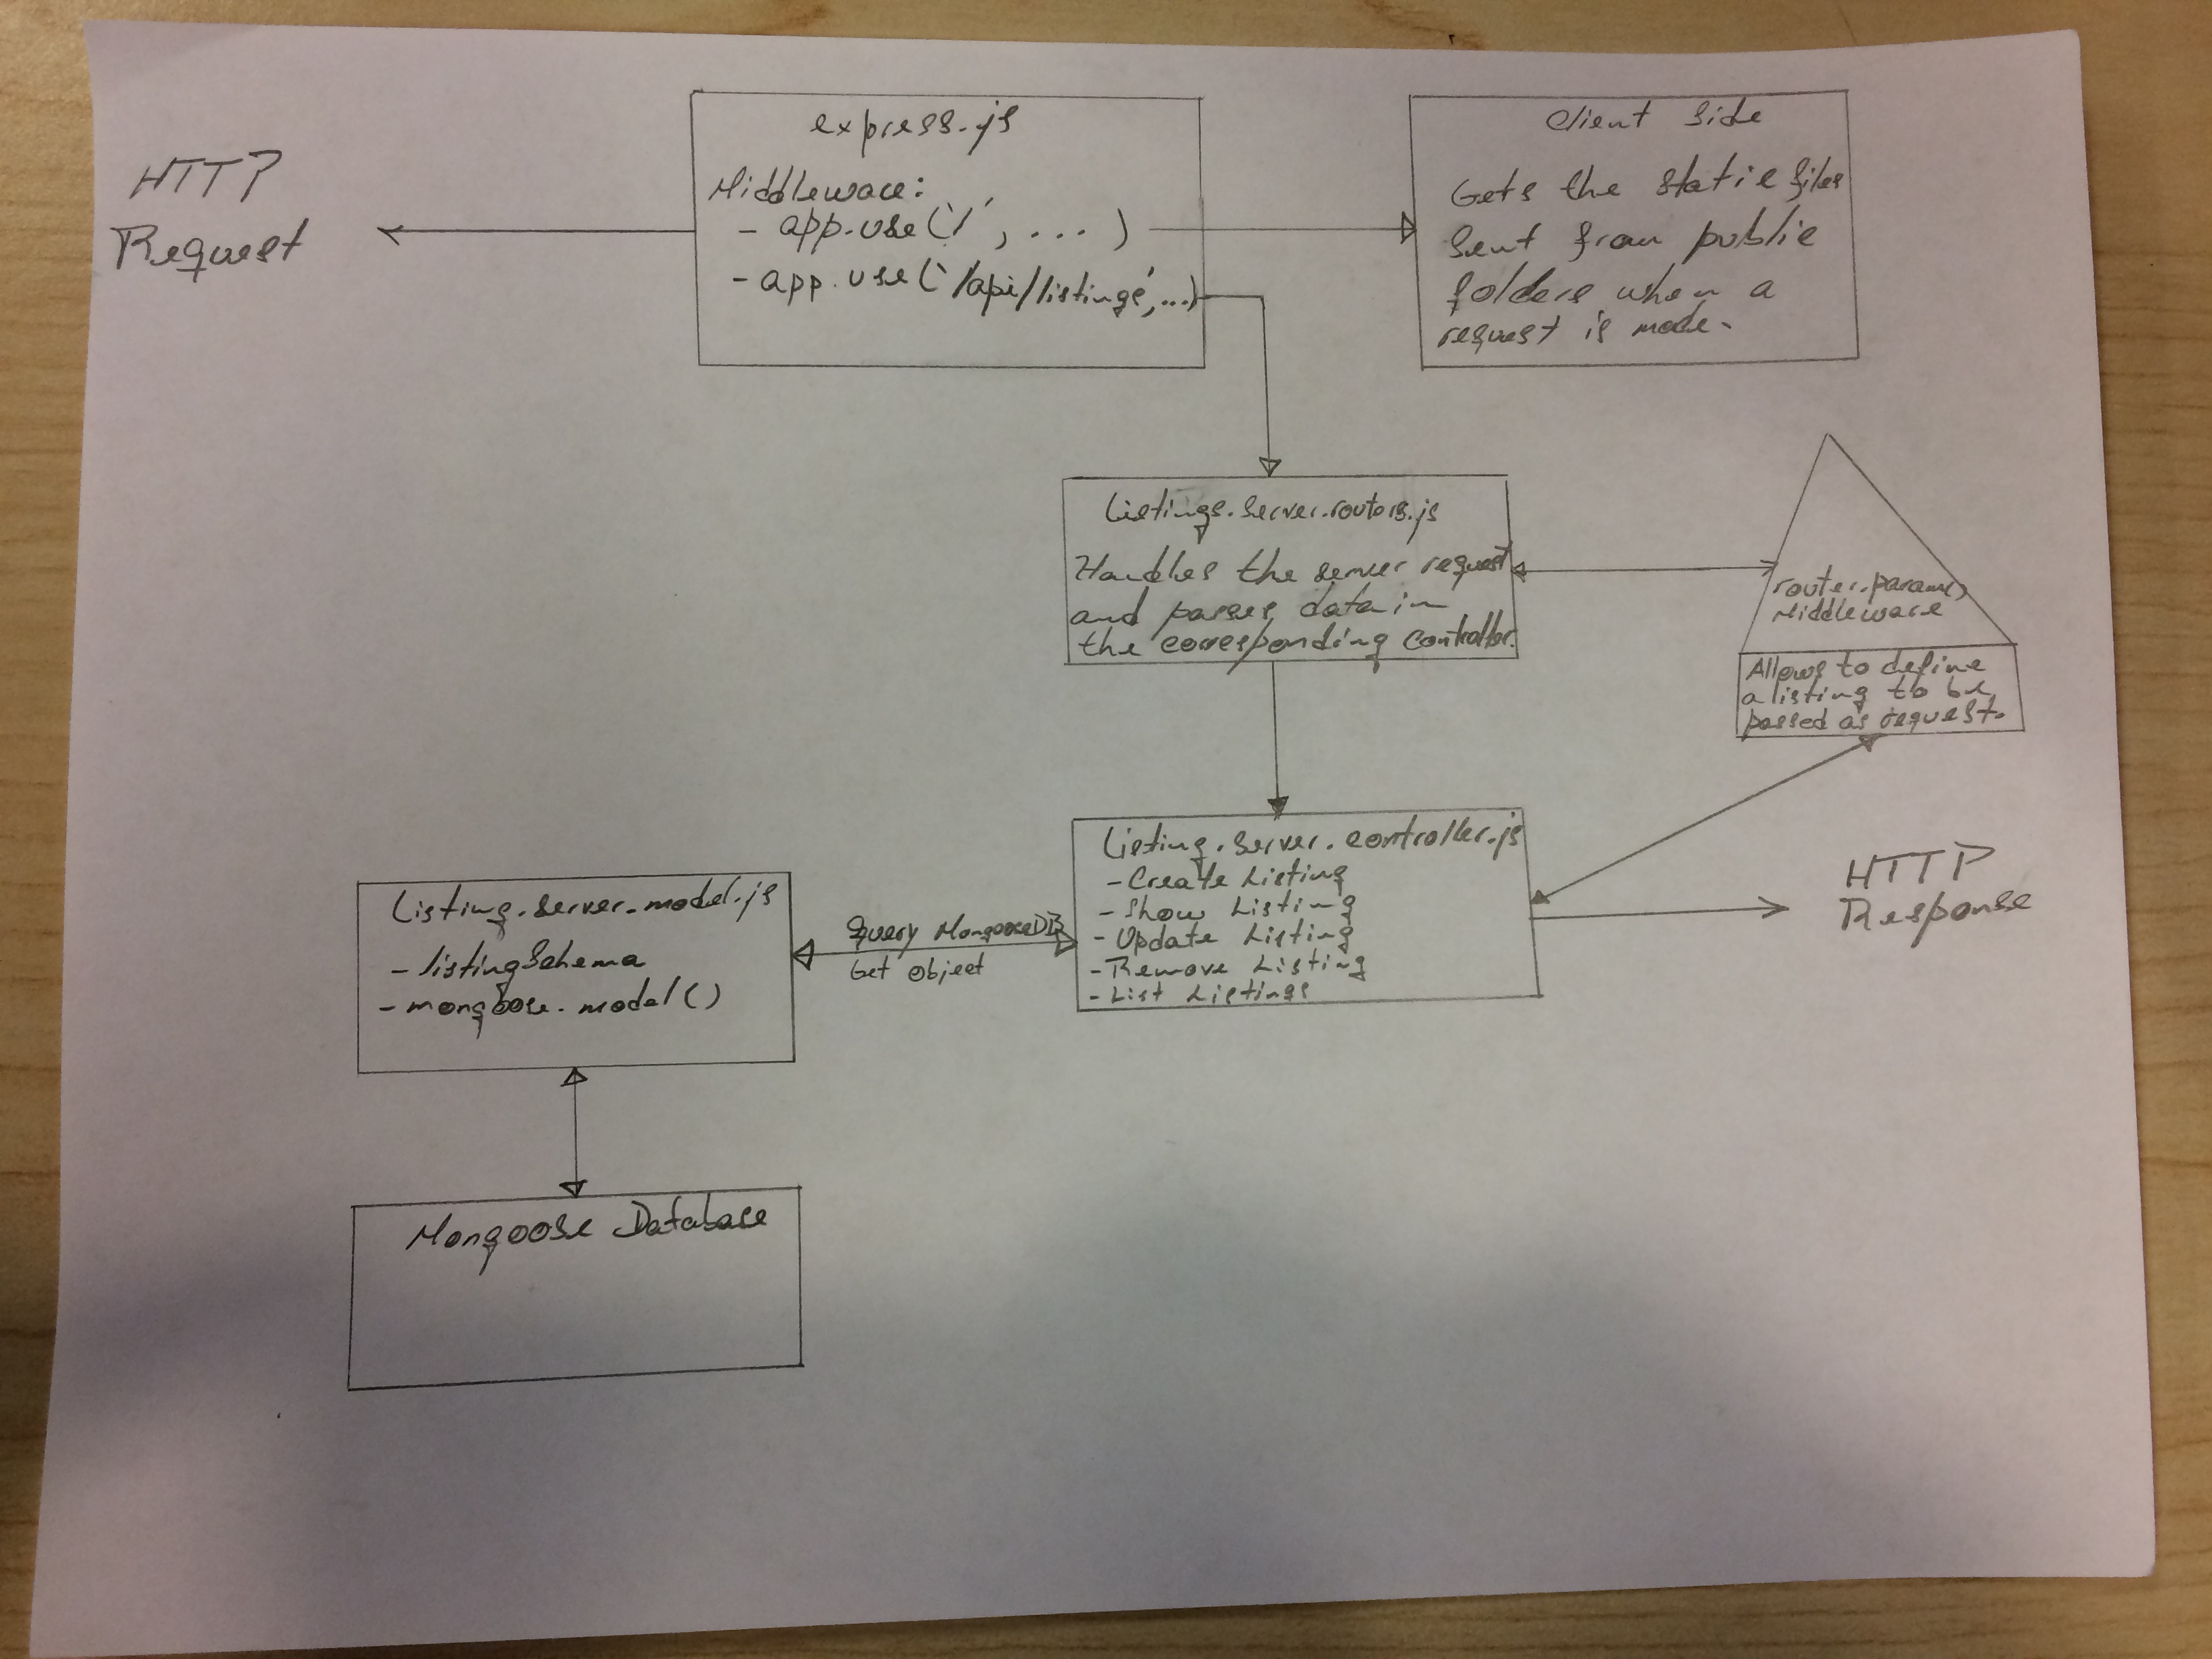 HTTP
Request
express.js
Middleware:
- app.use('/', ...)
- app.use('/api/listings', ...)
Client Side
Gets the static files
sent from public
folders when a
request is made.
Listings.server.routers.js
Handles the server request
and parses data in
the corresponding controller.
router.param()
Middleware
Allows to define
a listing to be
passed as request.
Listing.server.controller.js
- Create Listing
- Show Listing
- Update Listing
- Remove Listing
- List Listings
HTTP
Response
Query MongooseDB
Get object
Listing.server.model.js
- listingSchema
- mongoose.model()
Mongoose Database